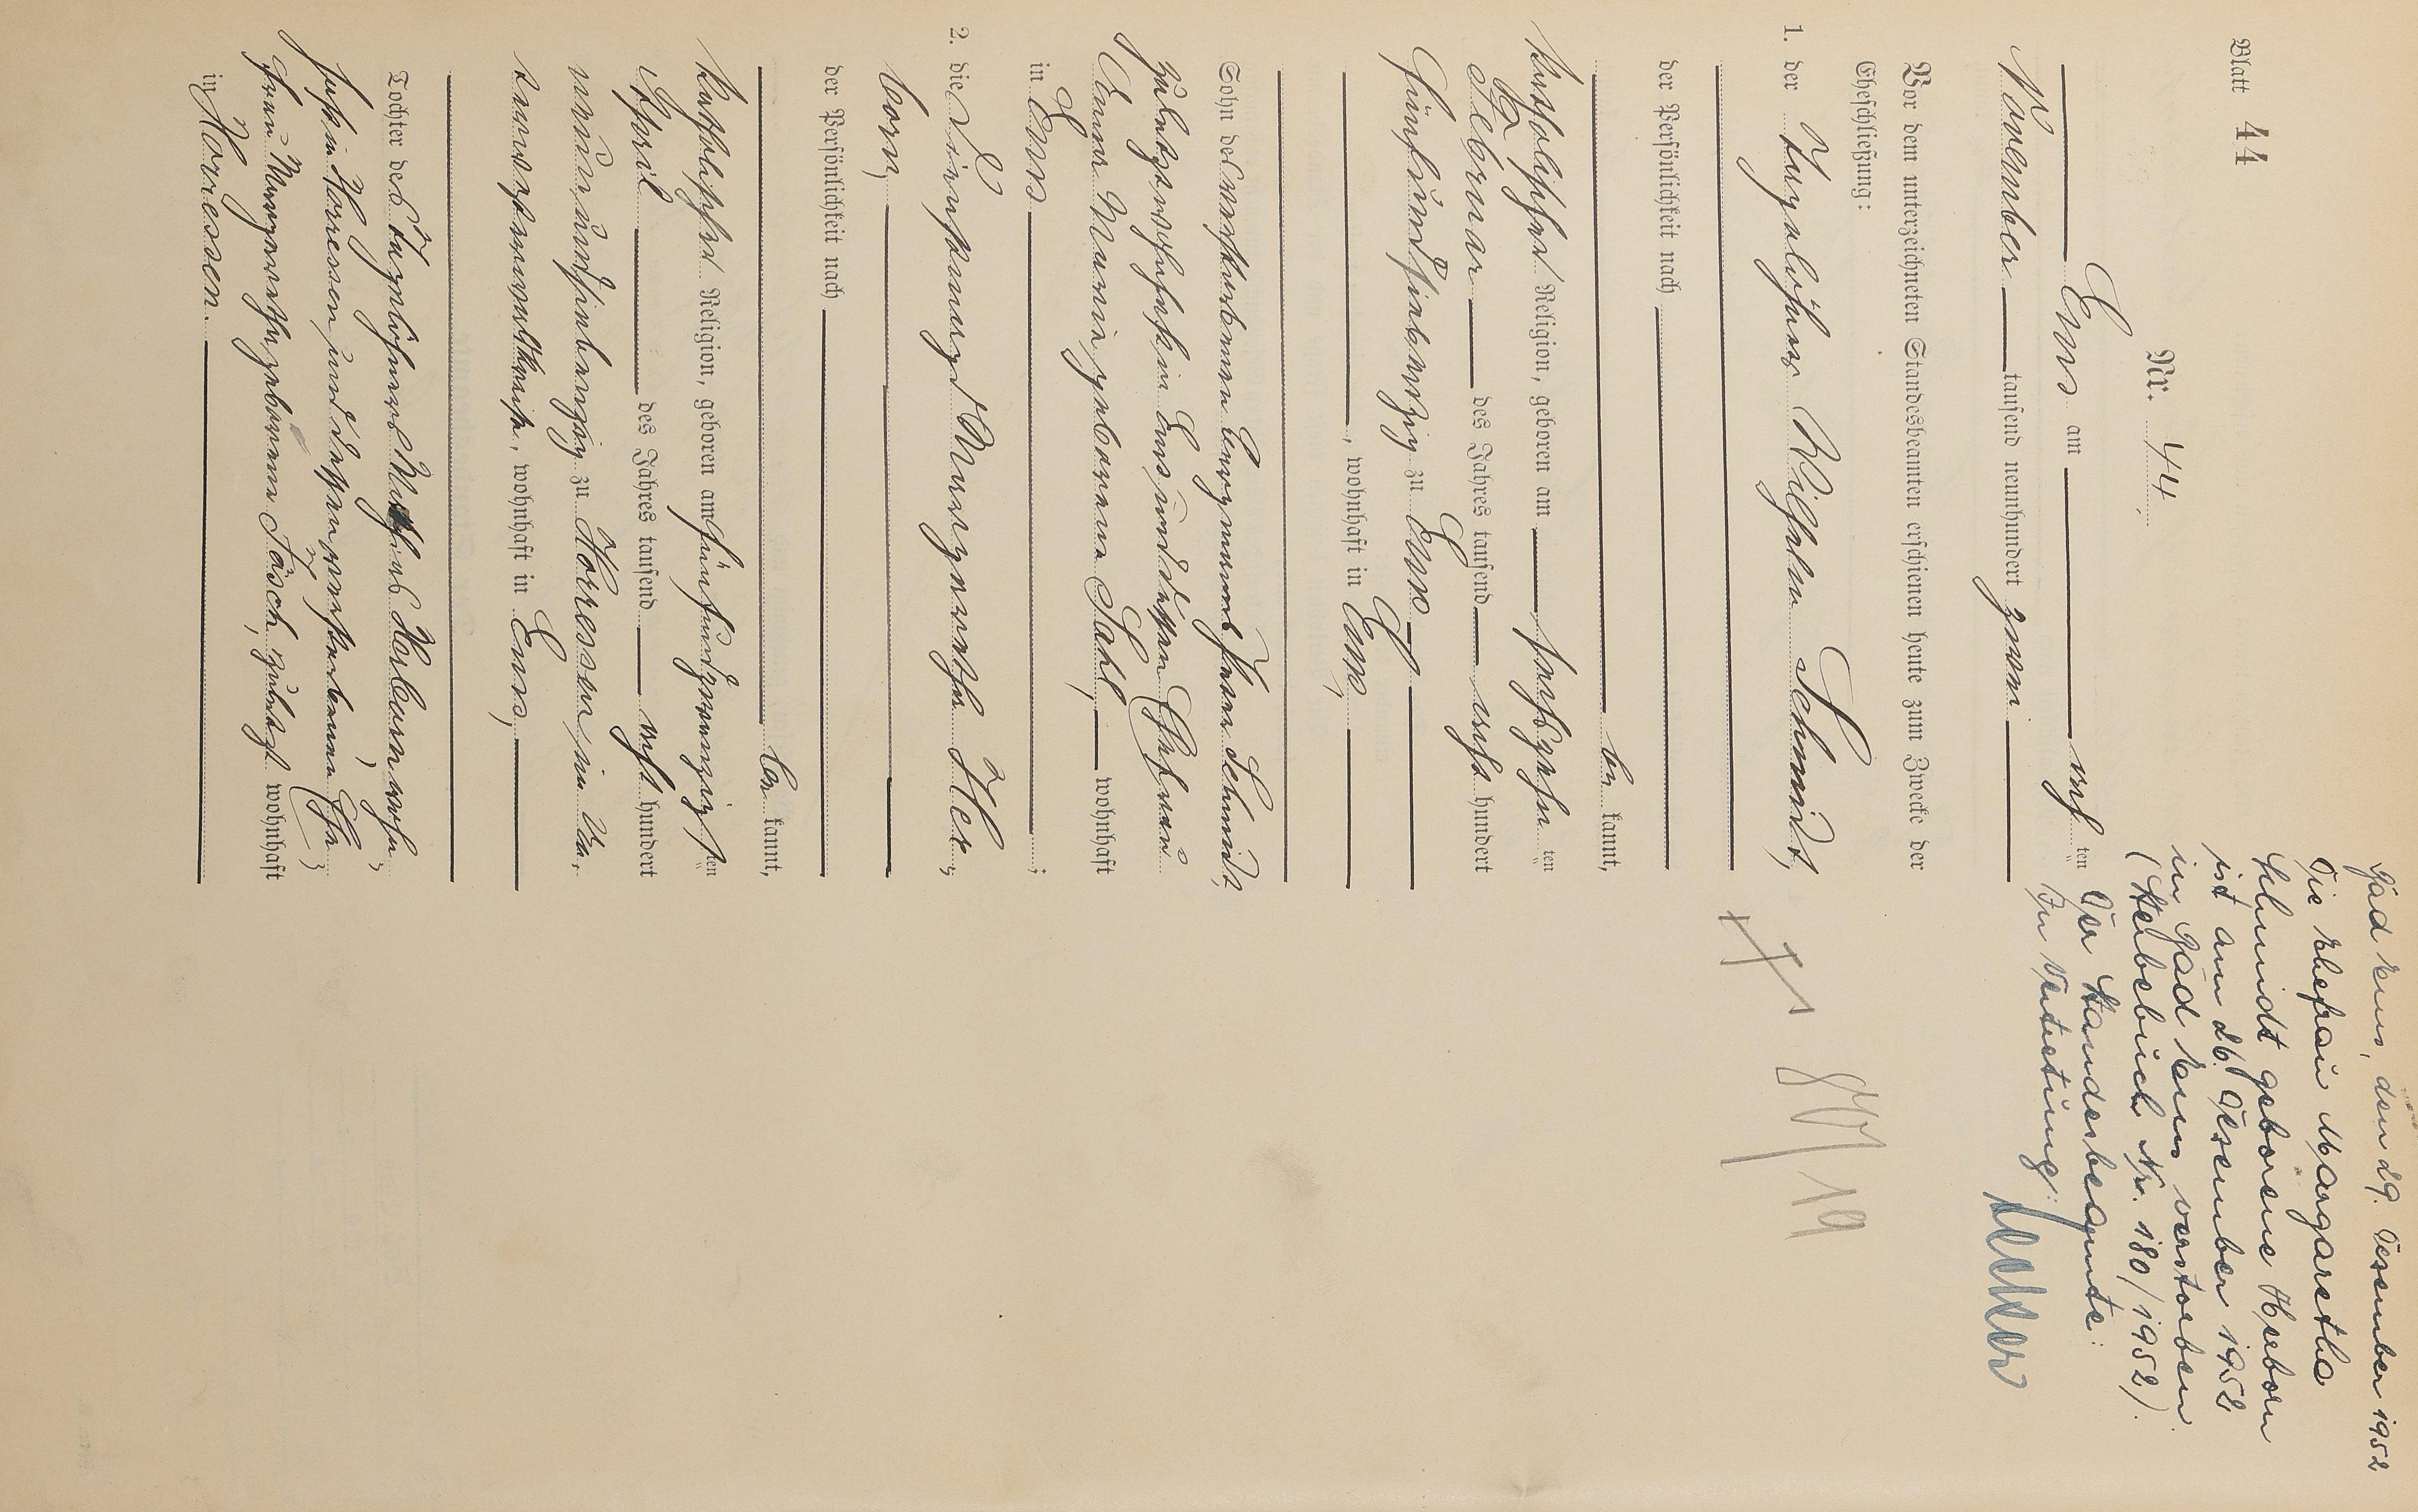 Blatt 44
Nr. 44.
Ems am acht ten
November tausend neunhundert zwei
Vor dem unterzeichneten Standesbeamten erschienen heute zum Zwecke der
Eheschließung:
1. der Tagelöhner Wilhelm Schmidt,
der Persönlichkeit nach
be kannt,
katholischer Religion, geboren am sechszehn ten
Februar des Jahres tausend acht hundert
fünfundsiebenzig zu Ems
, wohnhaft in Ems,
Sohn des verstorbenen Bergmanns Schmidt,
zuletzt wohnhaft in Ems und dessen Ehefrau
Anna Maria geborene Sahl, wohnhaft
in Ems ;
2. die Dienstmagd Margaretha Her,
born,
der Persönlichkeit nach
be kannt,
katholischer Religion, geboren am fünfundzwanzigsten
April des Jahres tausend acht hundert
neunundsiebenzig zu Horressen, im Un,
terwesterwaldkreise, wohnhaft in Ems,
Tochter des Tagelöhners Mathias Herborn, wohn,
haft in Horressen, und dessen verstorbenen Ehe,
frau Margaretha geborene Fäsch, zuletzt wohnhaft
in Horressen.
Bad Ems, den 29. Dezember 1952
Die Ehefrau Margaretha
Schmidt geborene Herborn
ist am 26. Dezember 1952
in Bad Ems verstorben
(Sterbebuch Nr. 180/1952).
Der Standesbeamte:
In Vertretung: